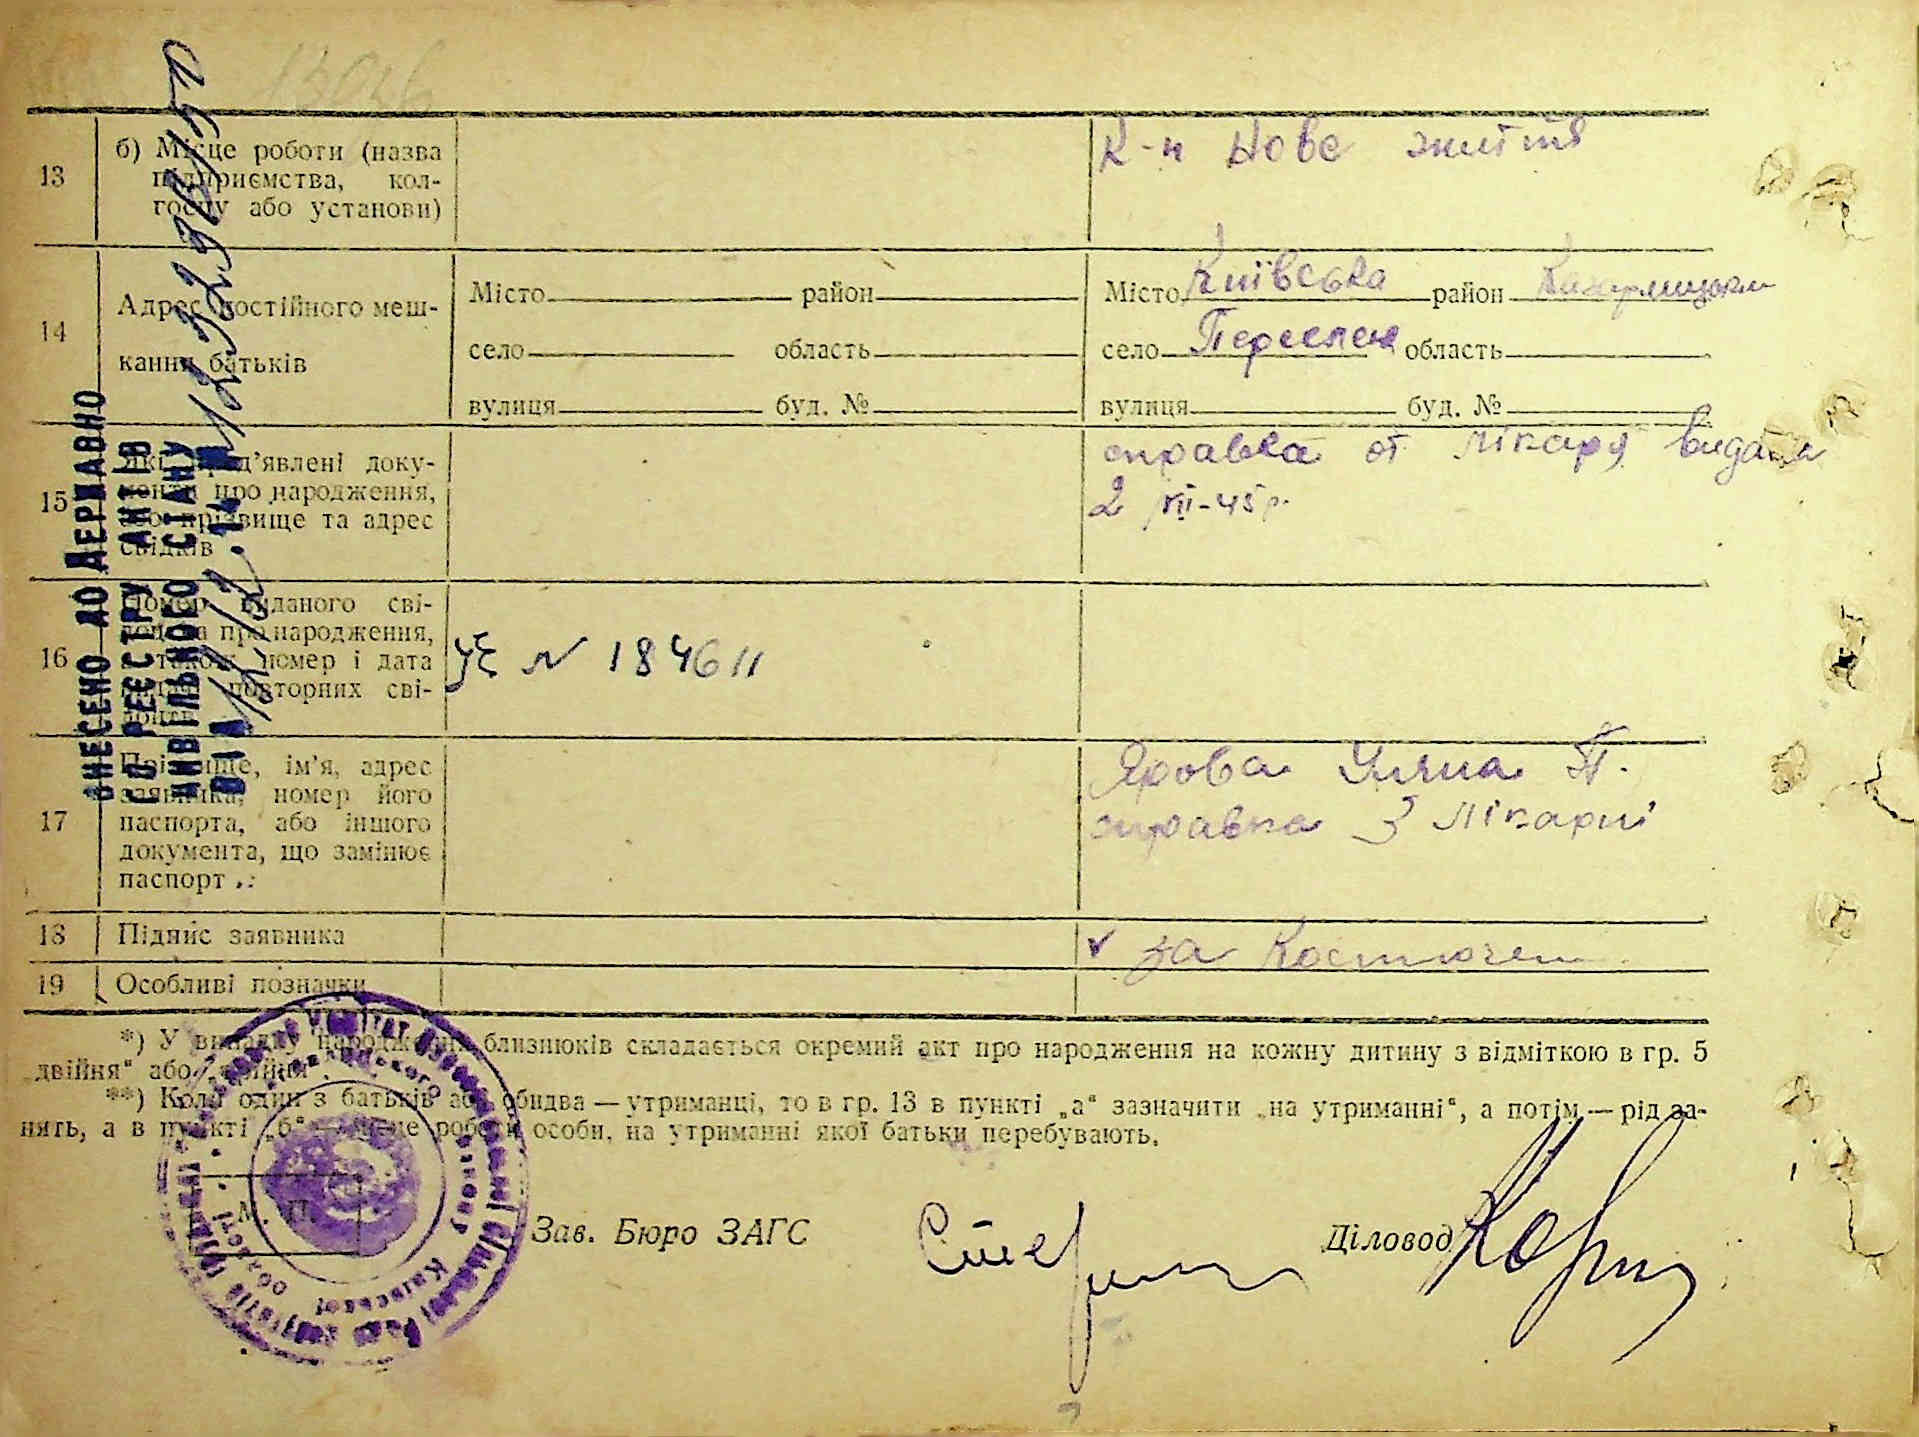 13
б) Місце роботи (назва
підприємства, кол-
госпу або установи)
К-п Нове життя
14
Адрес постійного меш-
кання батьків
Місто район
село область
вулиця буд. №
Місто Київська район
село Переселен область
вулиця буд. №
15
Які пред'явлені доку-
менти про народження,
або прізвище та адрес
свідків
справка от лікаря видана
2 VII-45р.
16
Номер виданого сві-
доцтва про народження,
а також номер і дата
видачі повторних сві-
доцтв
УЕ N 184611
17
Прізвище, ім'я, адрес
заявника, номер його
паспорта, або іншого
документа, що замінює
паспорт
Ярова Уляна П.
справка з лікарні
18
Підпис заявника
за
19
Особливі позначки
*) У випадку народження близнюків складається окремий акт про народження на кожну дитину з відміткою в гр. 5
„двійня“ або „трійня“.
**) Коли один з батьків або обидва — утриманці, то в гр. 13 в пункті „а“ зазначити „на утриманні“, а потім — рід за-
нять, а в пункті „б“ — місце роботи особи, на утриманні якої батьки перебувають.
М. П.
Зав. Бюро ЗАГС
Діловод
ВНЕСЕНО ДО ДЕРЖАВНО
ГО РЕЄСТРУ АКТІВ
ЦИВІЛЬНОГО СТАНУ